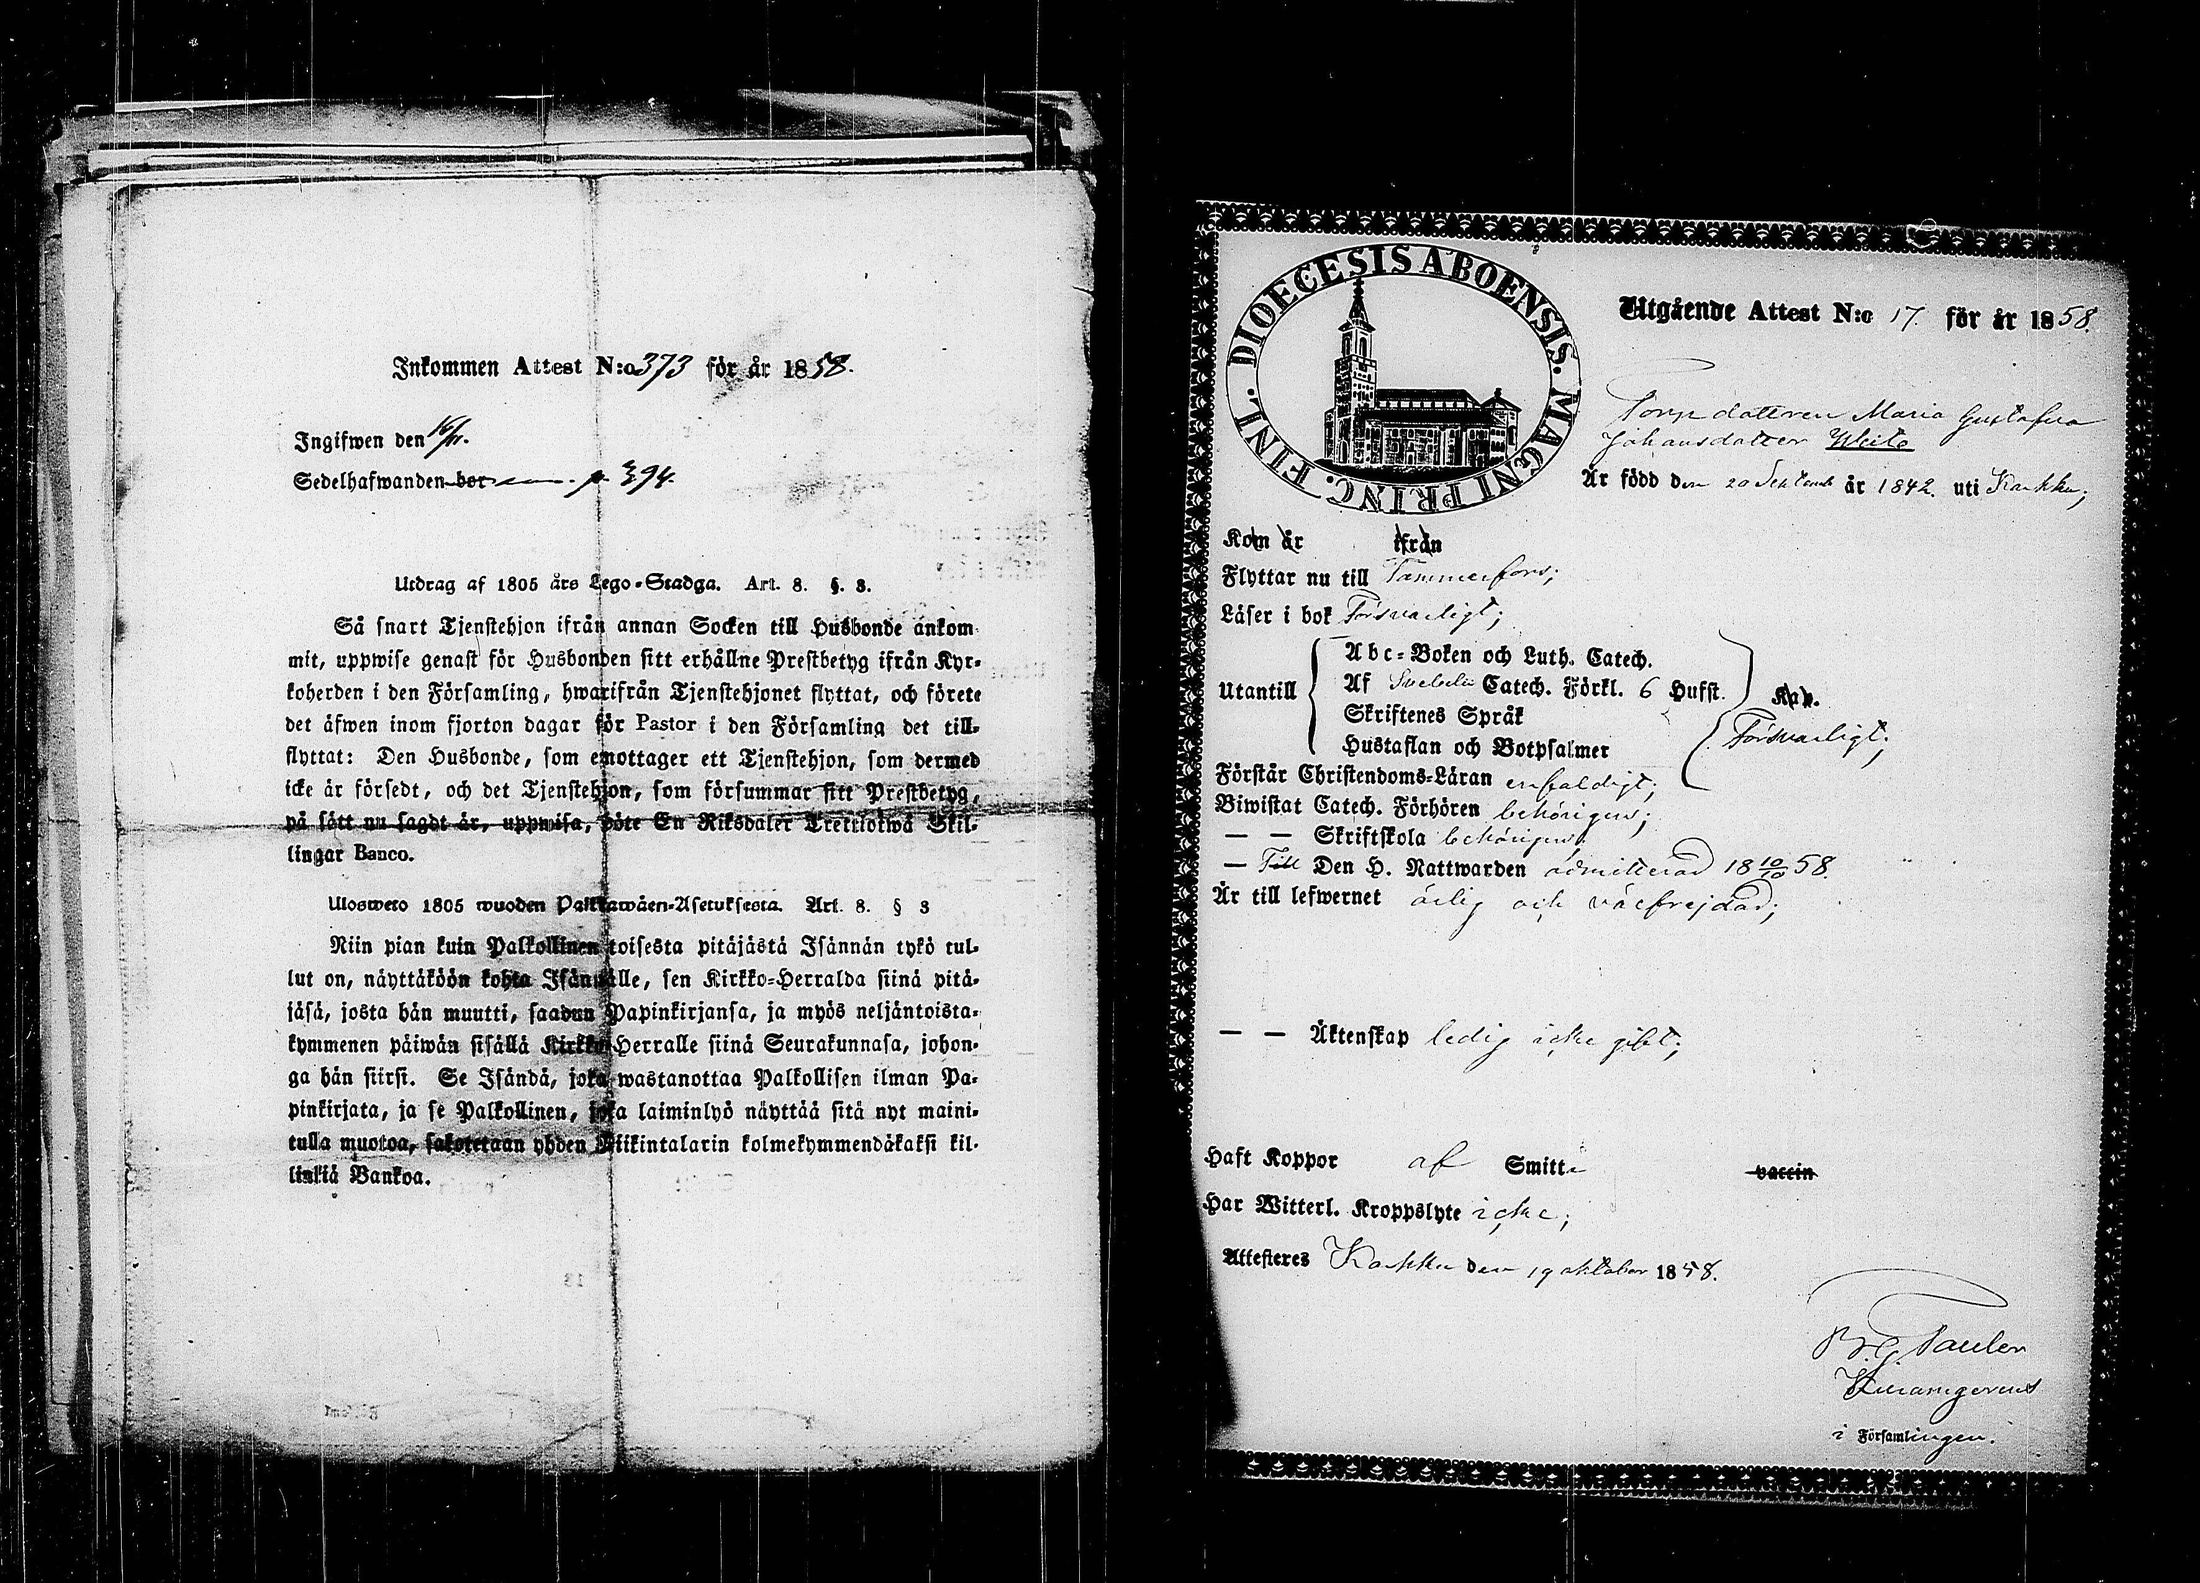 Inkommen Attest N:o 373 för år 1858.
Ingifwen den 16/11.
Sedelhafwanden bor p. 394.
Utdrag af 1805 års Lego-Stadga. Art. 8. §. 3.
Så snart Tjenstehjon ifrån annan Socken till Husbonde ankom-
mit, uppwise genast för Husbonden sitt erhållne Prestbetyg ifrån Kyr-
koherden i den Församling, hwarifrån Tjenstehjonet flyttat, och förete
det äfwen inom fjorton dagar för Pastor i den Församling det till-
flyttat: Den Husbonde, som emottager ett Tjenstehjon, som dermed
icke är försedt, och det Tjenstehjon, som försummar sitt Prestbetyg,
på sätt nu sagdt är, uppwisa, böte En Riksdaler Trettiotwå Skil-
lingar Banco.
Ulosweto 1805 wuoden Palkkawäen-Asetuksesta. Art. 8. § 3
Niin pian kuin Palkollinen toisesta pitäjästä Isännän tykö tul-
lut on, näyttäköön kohta Isännälle, sen Kirkko-Herralda siinä pitä-
jäsä, josta hän muutti, saadun Papinkirjansa, ja myös neljäntoista-
kymmenen päiwän sisällä Kirkko-Herralle siinä Seurakunnasa, johon-
ga hän siirsi. Se Isändä, joka wastanottaa Palkollisen ilman Pa-
pinkirjata, ja se Palkollinen, joka laiminlyö näyttää sitä nyt maini-
tulla muotoa, sakotetaan yhden Riikintalarin kolmekymmendäkaksi kil-
linkiä Bankoa.
DIOECESIS ABOENSIS. MAGNI PRINC. FINL.
Utgående Attest N:o 17. för år 1858.
Torpdottren Maria Gustafva
Johansdotter
Är född den 20 Septemb år 1842. uti Karkku;
Kom år ifrån
Flyttar nu till Tammerfors;
Läser i bok Försvarligt;
Utantill
Abc-Boken och Luth. Catech.
Af Svebelii Catech. Förkl. 6 Hufst. Kap.
Skriftenes Språk
Hustaflan och Botpsalmer
Försvarligt;
Förstår Christendoms-Läran enfaldigt;
Biwistat Catech. Förhören behörigen;
— — Skriftskola behörigen;
— Till Den H. Nattwarden admitterad 18 10/10 58.
Är till lefwernet ärlig och välfrejdad;
— — Äktenskap ledig icke gift;
Haft Koppor af Smitta vaccin
Har Witterl. Kroppslyte icke;
Attesteres Karkku den 19 oktober 1858.
i Församlingen.